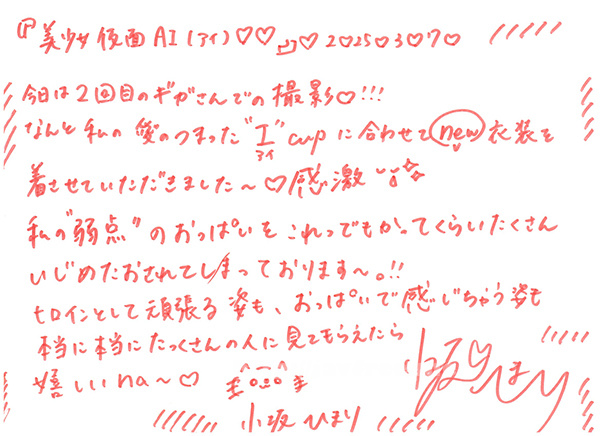 『美少女仮面AI(アイ)♡♡』♡2025♡3♡7♡
今日は2回目のギガさんでの撮影♡!!!
なんと私の愛のつまった"I"cupに合わせてnew衣装を
アイ
着させていただきました〜♡感激
私の"弱点"のおっぱいをこれってもかってくらいたくさん
いじめたおされてしまっております〜。!!
ヒロインとして頑張る姿も、おっぱいで感じちゃう姿も
本当に本当にたっくさんの人に見てもらえたら
嬉しいna〜♡
小坂ひまり
小坂ひまり